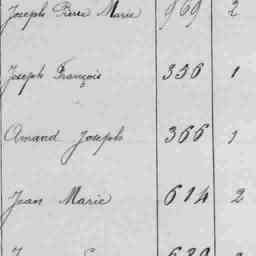 Joseph Pierre Marie 969 2
Joseph François 356 1
Amand Joseph 366 1
Jean Marie 614 2